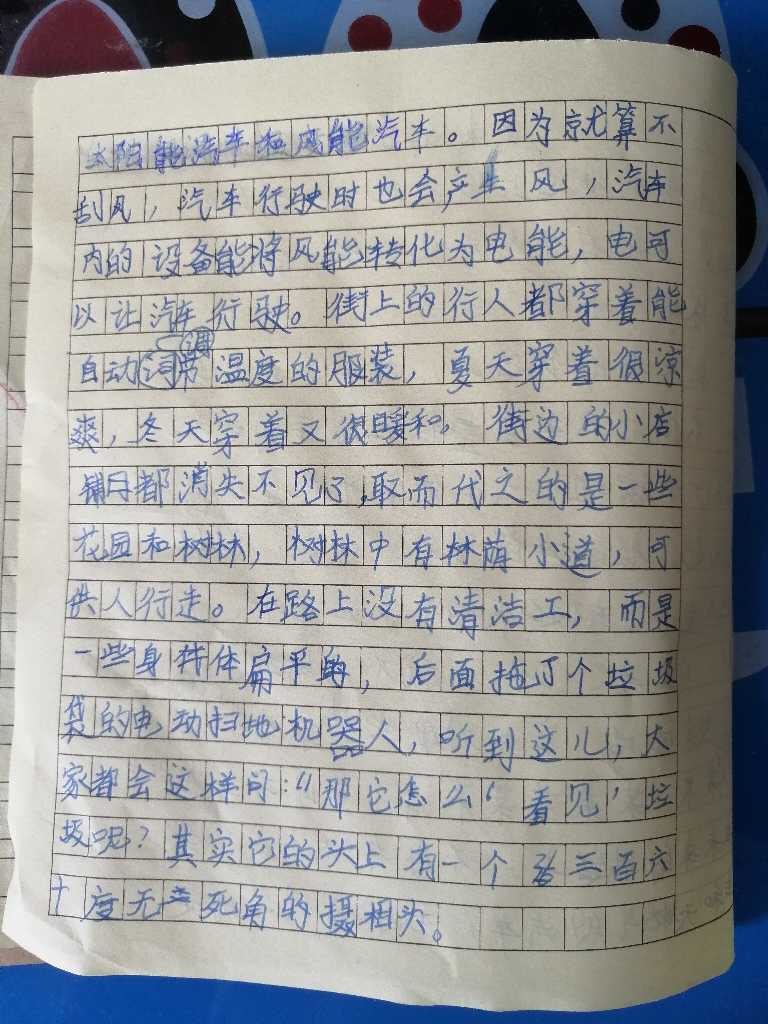 太阳能汽车和风能汽车。因为就算不
刮风，汽车行驶时也会产生风，汽车
内的设备能将风能转化为电能，电可
以让汽车行驶。街上的行人都穿着能
自动调节温度的服装，夏天穿着很凉
爽，冬天穿着又很暖和，街边的小店
铺都消失不见了，取而代之的是一些
花园和树林，树林中有林荫小道，可
供人行走。在路上没有清洁工，而是
一些身体扁平的，后面拖了个垃圾
袋的电动扫地机器人，听到这儿，大
家都会这样问：“那它怎么‘看见’垃
圾呢？其实它的头上有一个三百六
十度无死角的摄相头。